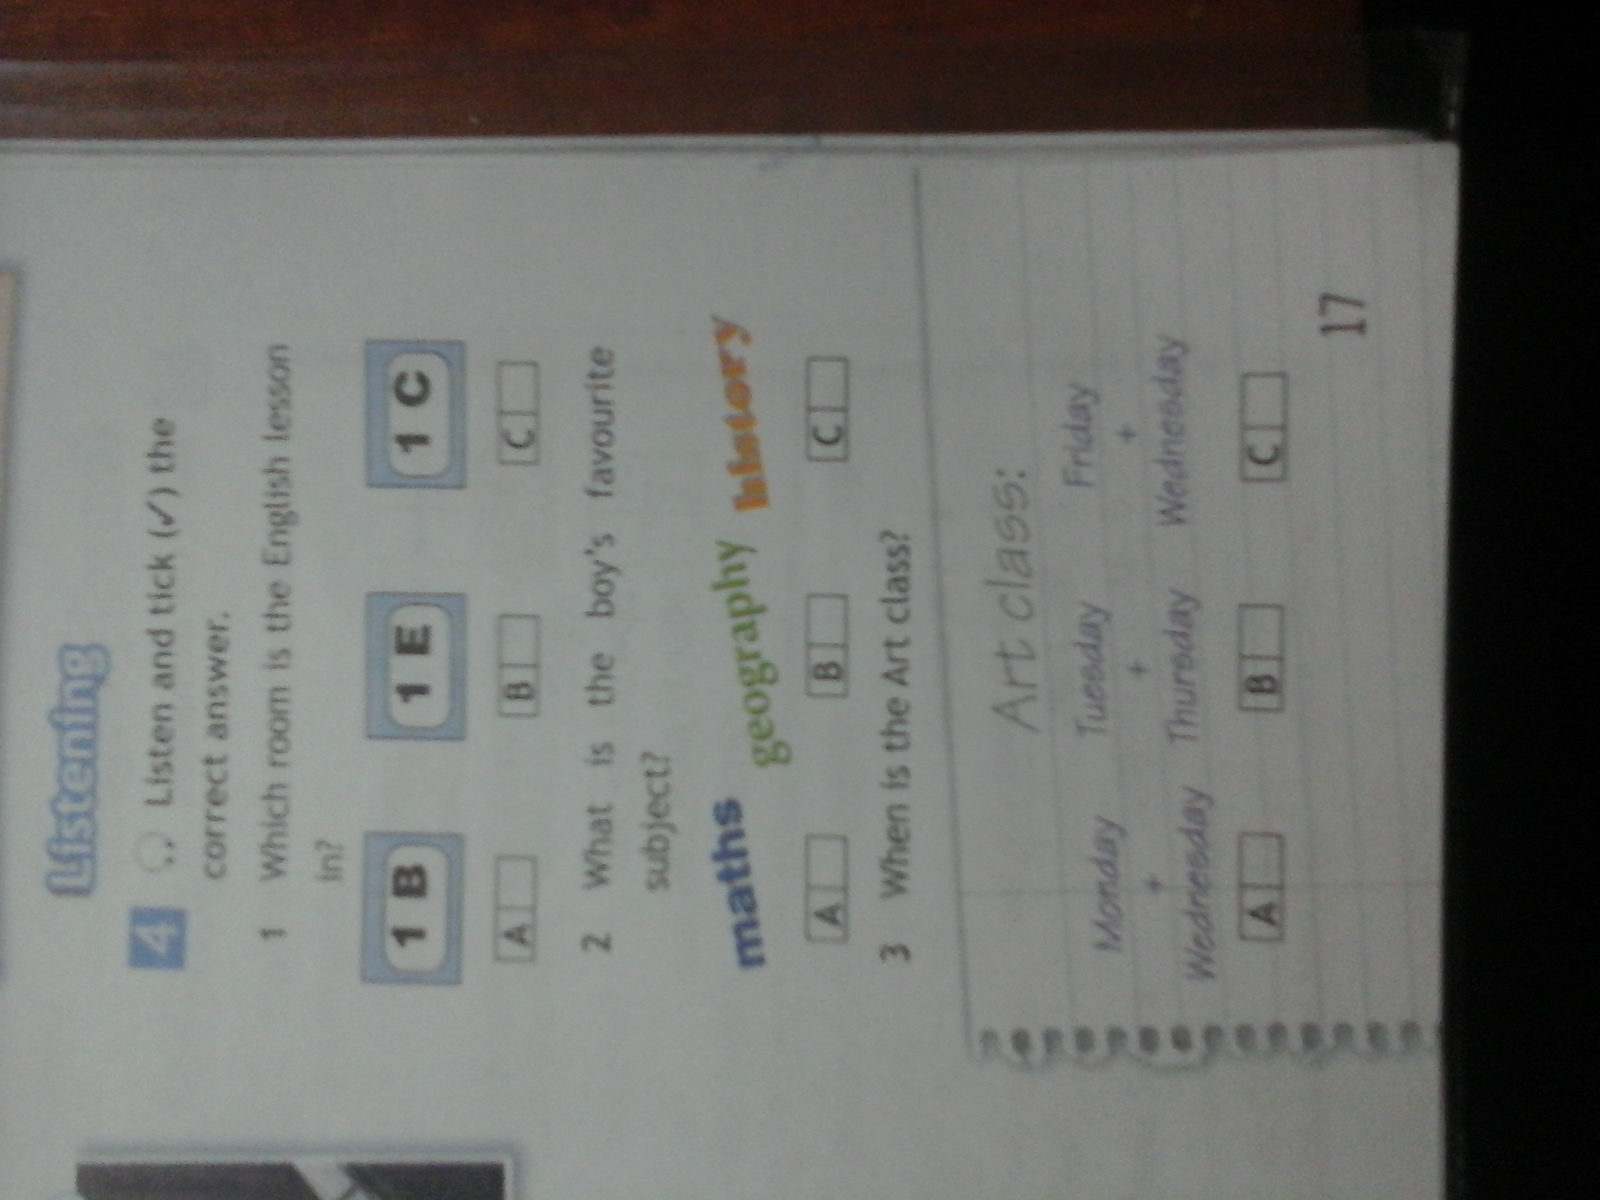 Listening
4 Listen and tick (✓) the
correct answer.
1 Which room is the English lesson
in?
1 B 1 E 1 C
A B C
2 What is the boy's favourite
subject?
maths geography history
A B C
3 When is the Art class?
Art class:
Monday Tuesday Friday
+ + +
Wednesday Thursday Wednesday
A B C
17